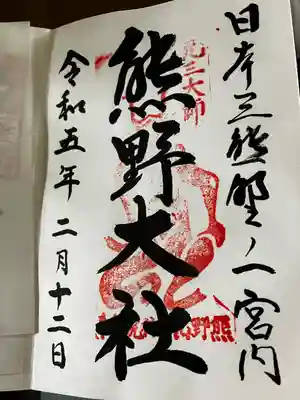 日本三熊野ノ一宮内
熊野大社
元三大師
令和五年 二月十二日